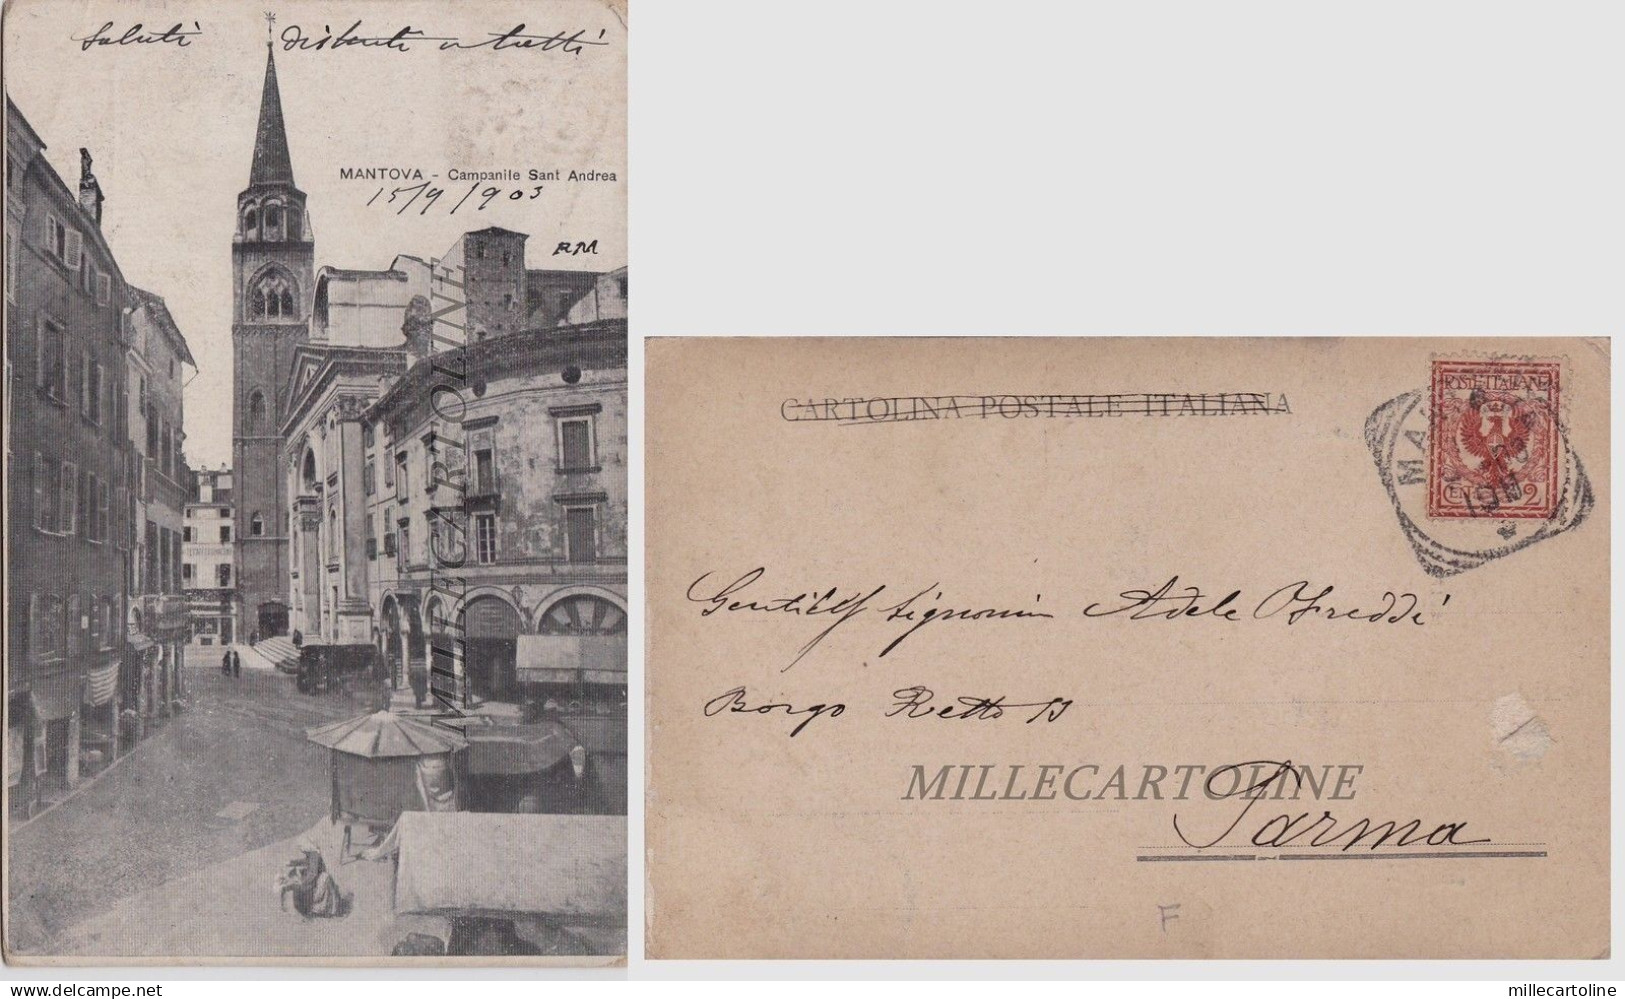 Saluti distinti a tutti
MANTOVA - Campanile Sant Andrea
15/9/903
RM
MILLECARTOLINE
CARTOLINA POSTALE ITALIANA
POSTE ITALIANE
CEN 2
Signorina Adele Offreddi
Borgo Retto
Parma
MILLECARTOLINE
F
delcampe.net
millecartoline